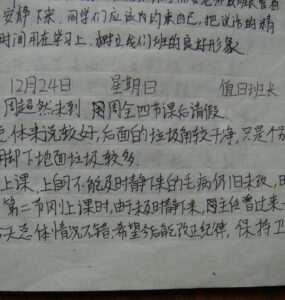 安静下来，同学们应该約束自己，把说话的精
时间用在学习上，树立我们班的良好形象
12月24日 星期日 值日班长
周超然未到，周全四节课后请假。
总体来说较好，后面的垃圾角较干净，只是个别
脚下地面垃圾较多。
上课，上自习不能及时静下来的毛病仍旧未改，
第二节刚上课时，由于未及时静下来，周主任曾过来一
天总体情况不错，希望今后能改正纪律，保持卫